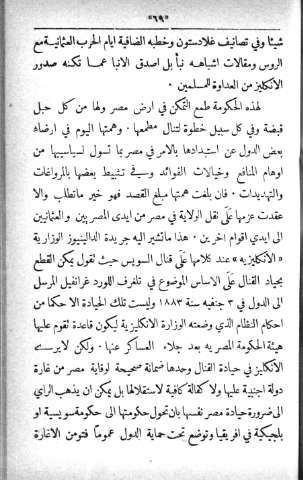 «٦٩»
شيئًا وفي تصانيف غلادستون وخطبه الضافية ايام الحرب العثمانية مع
الروس ومقالات اشباهه نبأ بل اصدق الانبا عما تكنه صدور
الانكليز من العداوة للمسلمين .
لهذه الحكومة طمع التمكن في ارض مصر ولها من كل حبل
قبضة وفي كل سبيل خطوة لتنال مطمعها . وهمتها اليوم في ارضاء
بعض الدول عن استبدادها بالامر في مصر بما تسول لسياسيها من
اوهام المنافع وخيالات الفوائد وسعي تثبيط بعضها بالمراوغات
والتهديدات . فان بلغت همتها مبلغ القصد فهو خير ماتطلب والا
عقدت عزمها على نقل الولاية في مصر من ايدي المصريين والعثمانيين
الى ايدي اقوام اخرين . هذا ماتشير اليه جريدة الدالينيوز الوزارية
«الانكليزيه» عند كلامها على قنال السويس حيث تقول يمكن القطع
بحياد القنال على الاساس الموضوع في تلغراف اللورد غرانفيل المرسل
الى الدول في ٣ جنفيه سنة ١٨٨٣ وليست تلك الحيادة الا حكما من
احكام النظام الذي وضعته الوزارة الانكليزية ليكون قاعدة تقوم عليها
هيئة الحكومة المصريه بعد جلاء العساكر عنها . ولكن لايرى
الانكليز في حيادة القنال وحدها ضمانة صحيحة لوقاية مصر من غارة
دولة اجنبية عليها ولا كفالة كافية لاستقلالها بل يمكن ان يذهب الراي
الى ضرورة حيادة مصر نفسها بان تحول حكومتها الى حكومة سويسية او
بلجيكية في افريقيا وتوضع تحت حماية الدول عموما فتومن الاغارة